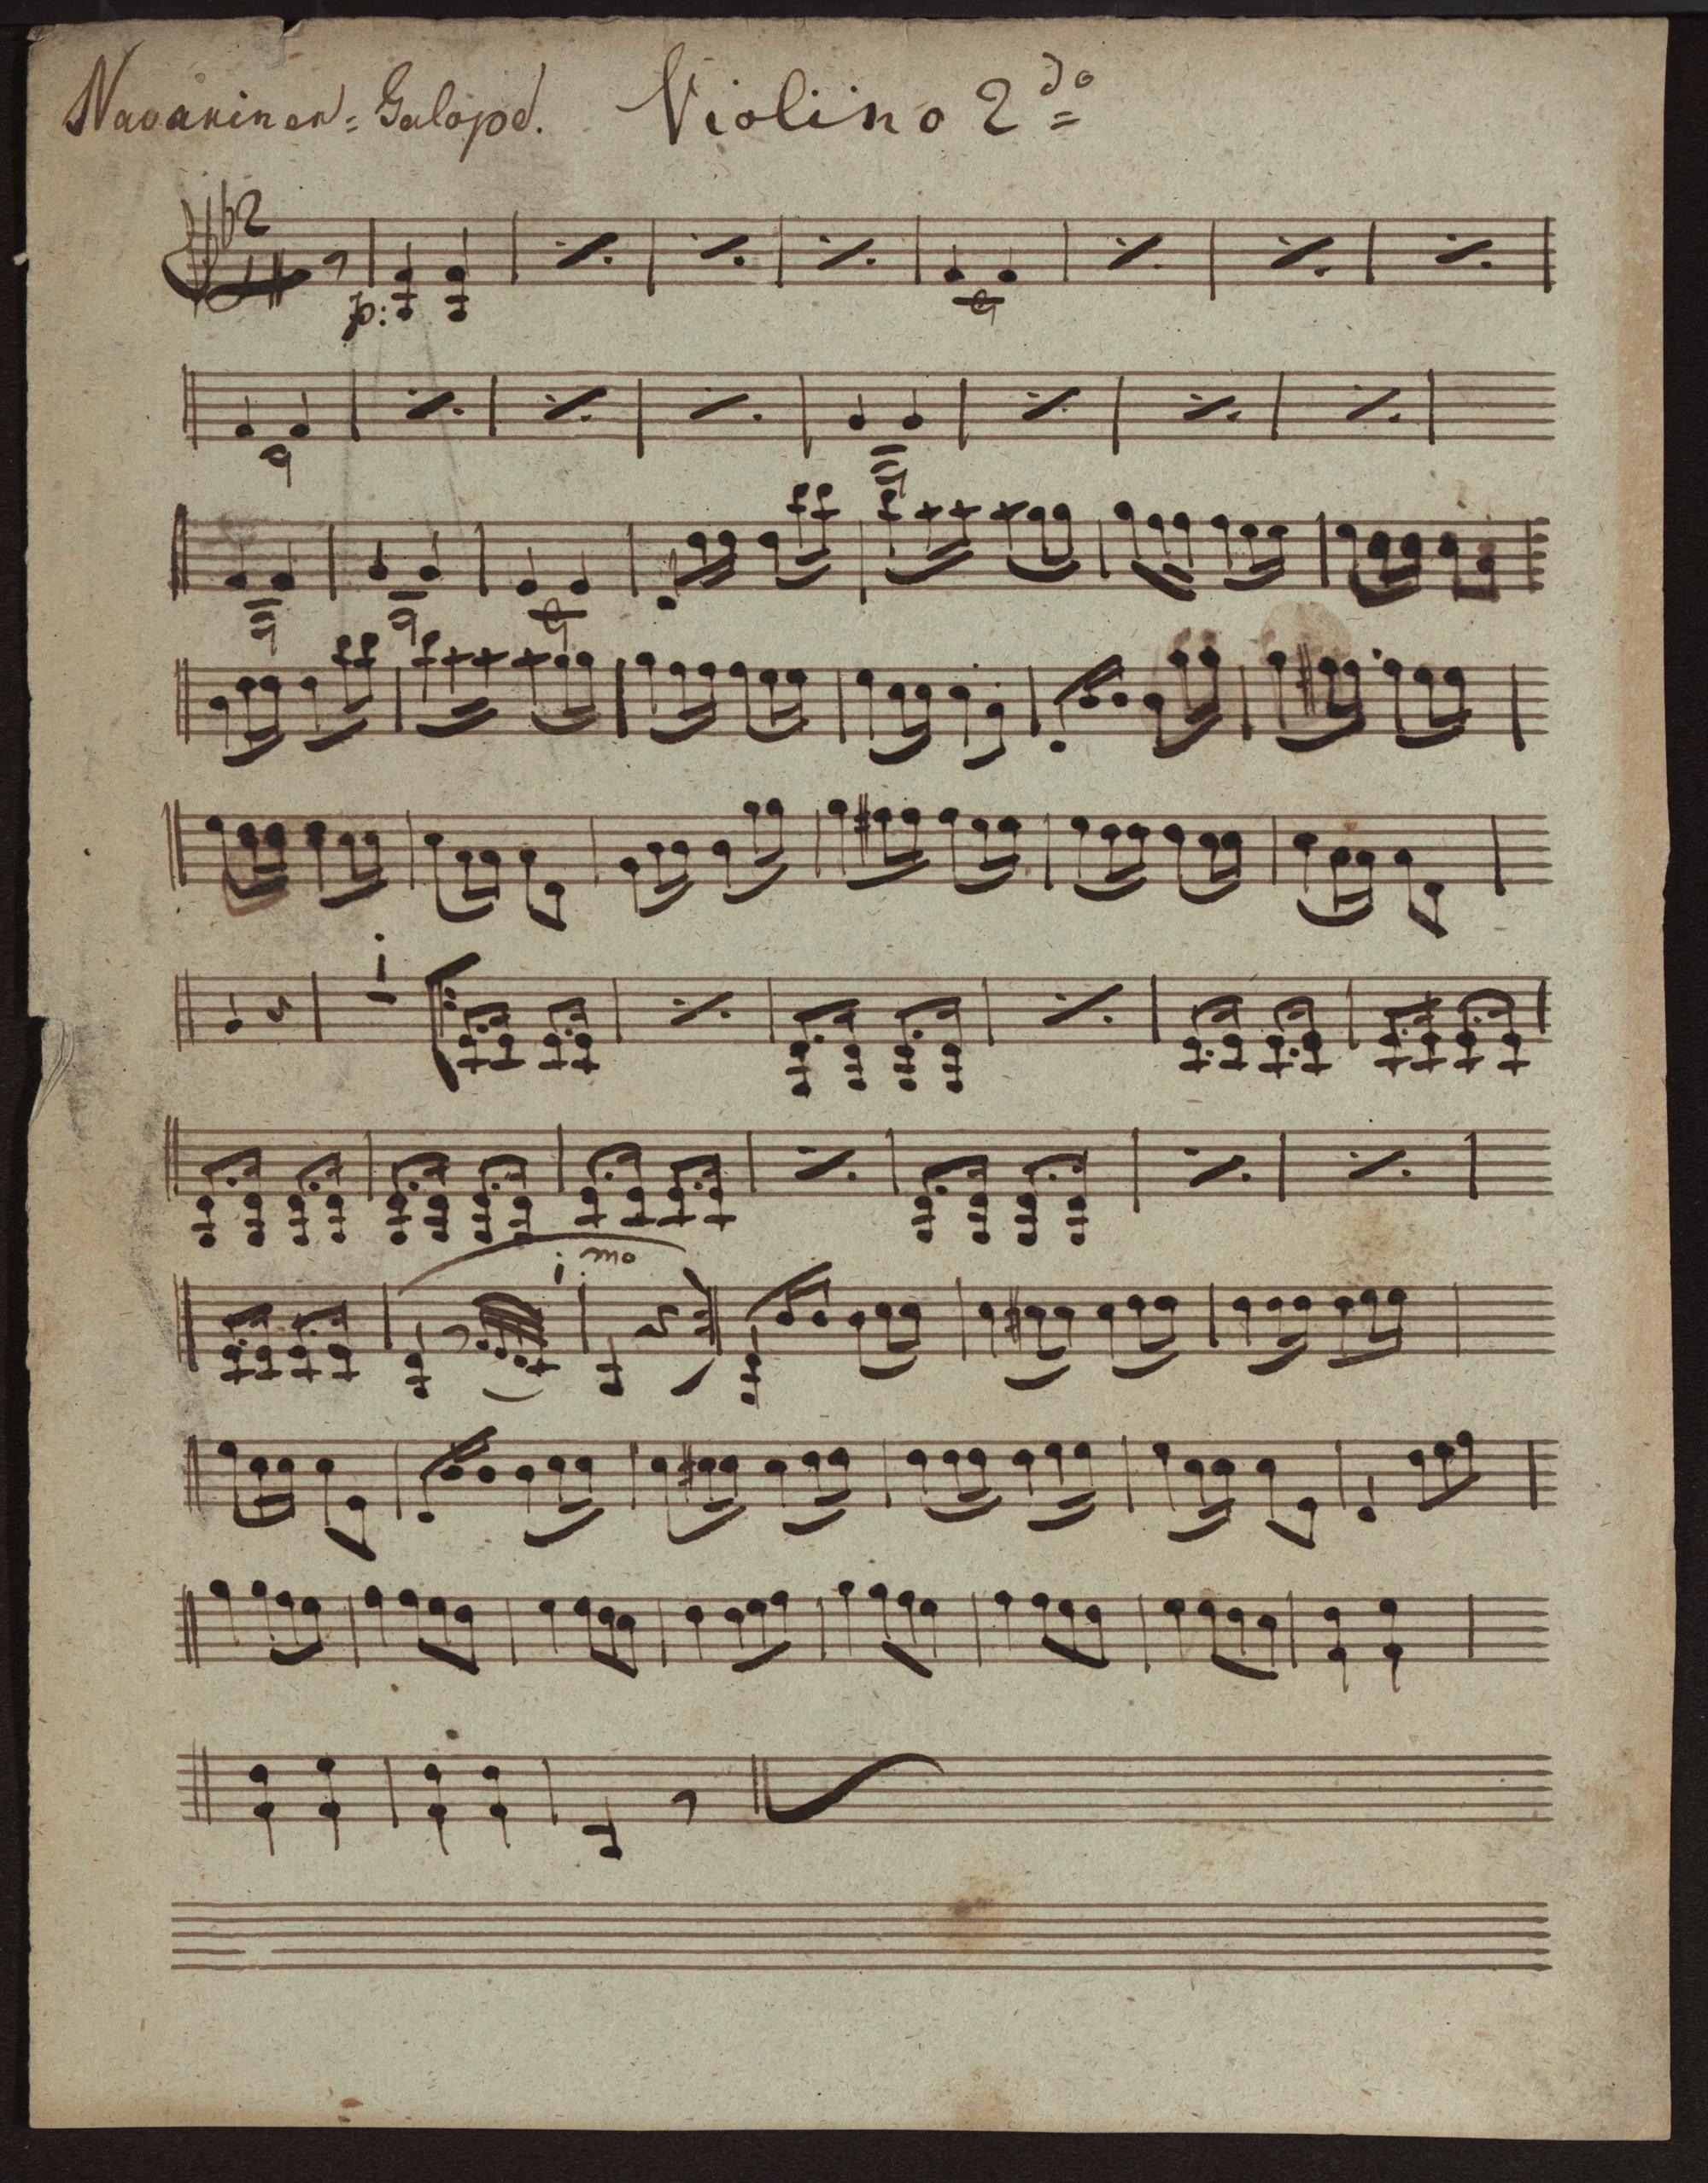 Navariner = Galopd. Violino 2do
2
p:
i
i mo